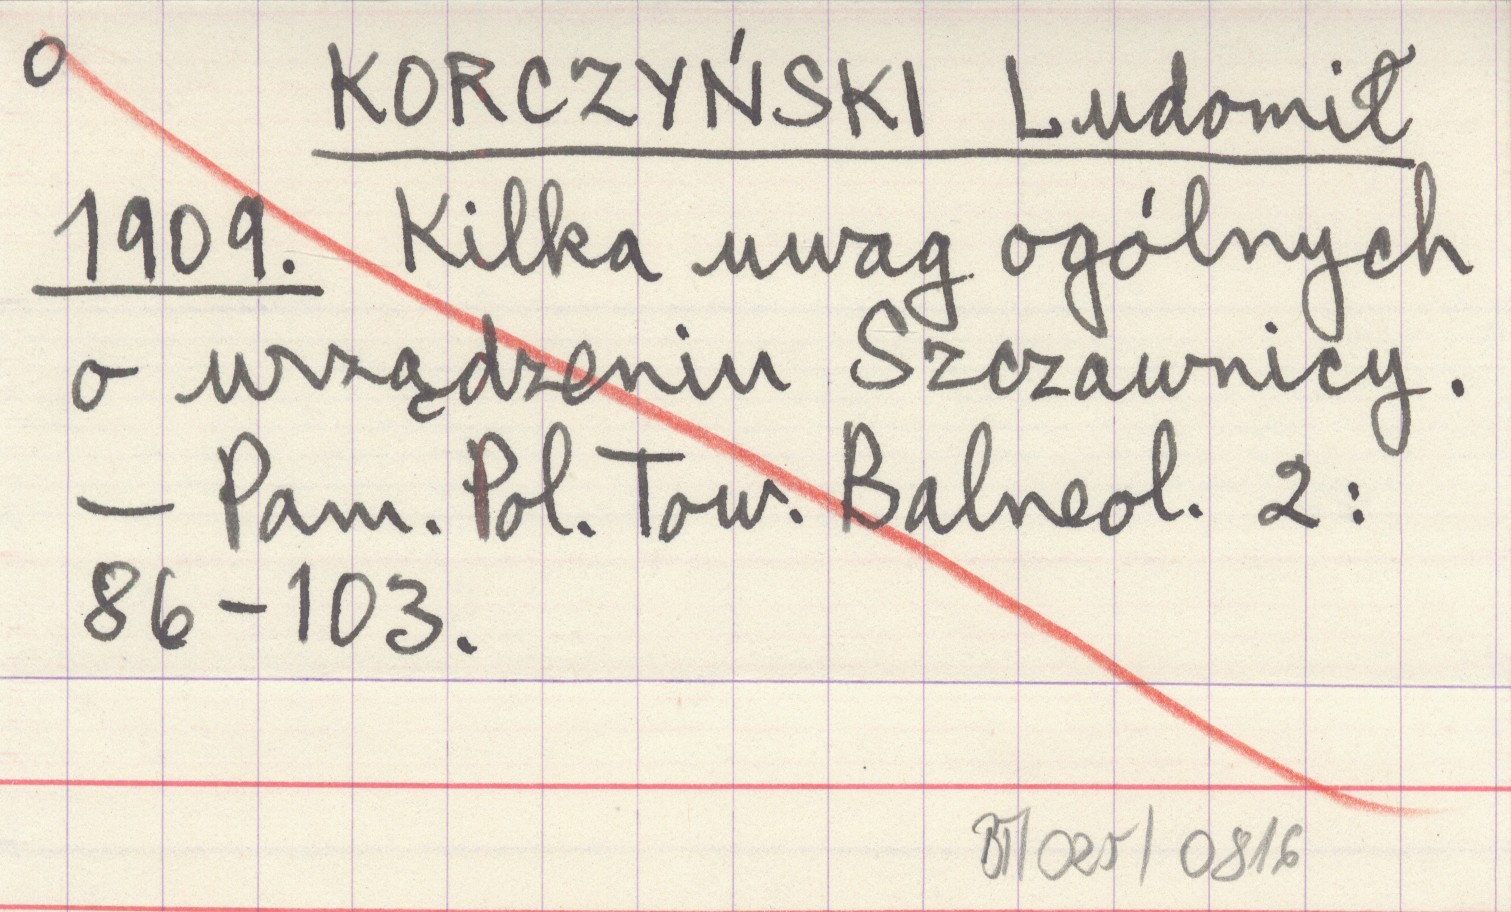 o KORCZYŃSKI Ludomił
1909. Kilka uwag ogólnych
o urządzeniu Szczawnicy.
— Pam. Pol. Tow. Balneol. 2:
86-103.
BT/025/0816